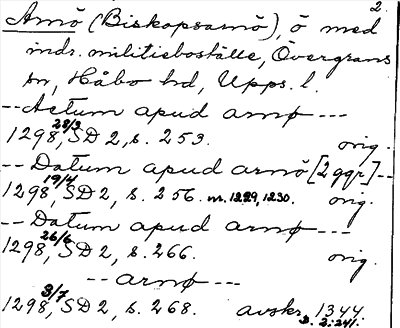 2.
Arnö (Biskopsarnö), ö med
indr. militieboställe, Övergrans
sn, Håbo hd, Upps. l.
-- Actum apud arnø ---
1298 28/3, SD 2, s. 253. orig.
-- Datum apud arnö [2 ggr] --
1298 19/4, SD 2, s. 256. nr. 1229, 1230. orig.
-- Datum apud arnø ---
1298 26/6, SD 2, s. 266. orig.
-- arnø ---
1298 3/7, SD 2, s. 268. avskr. 1344.